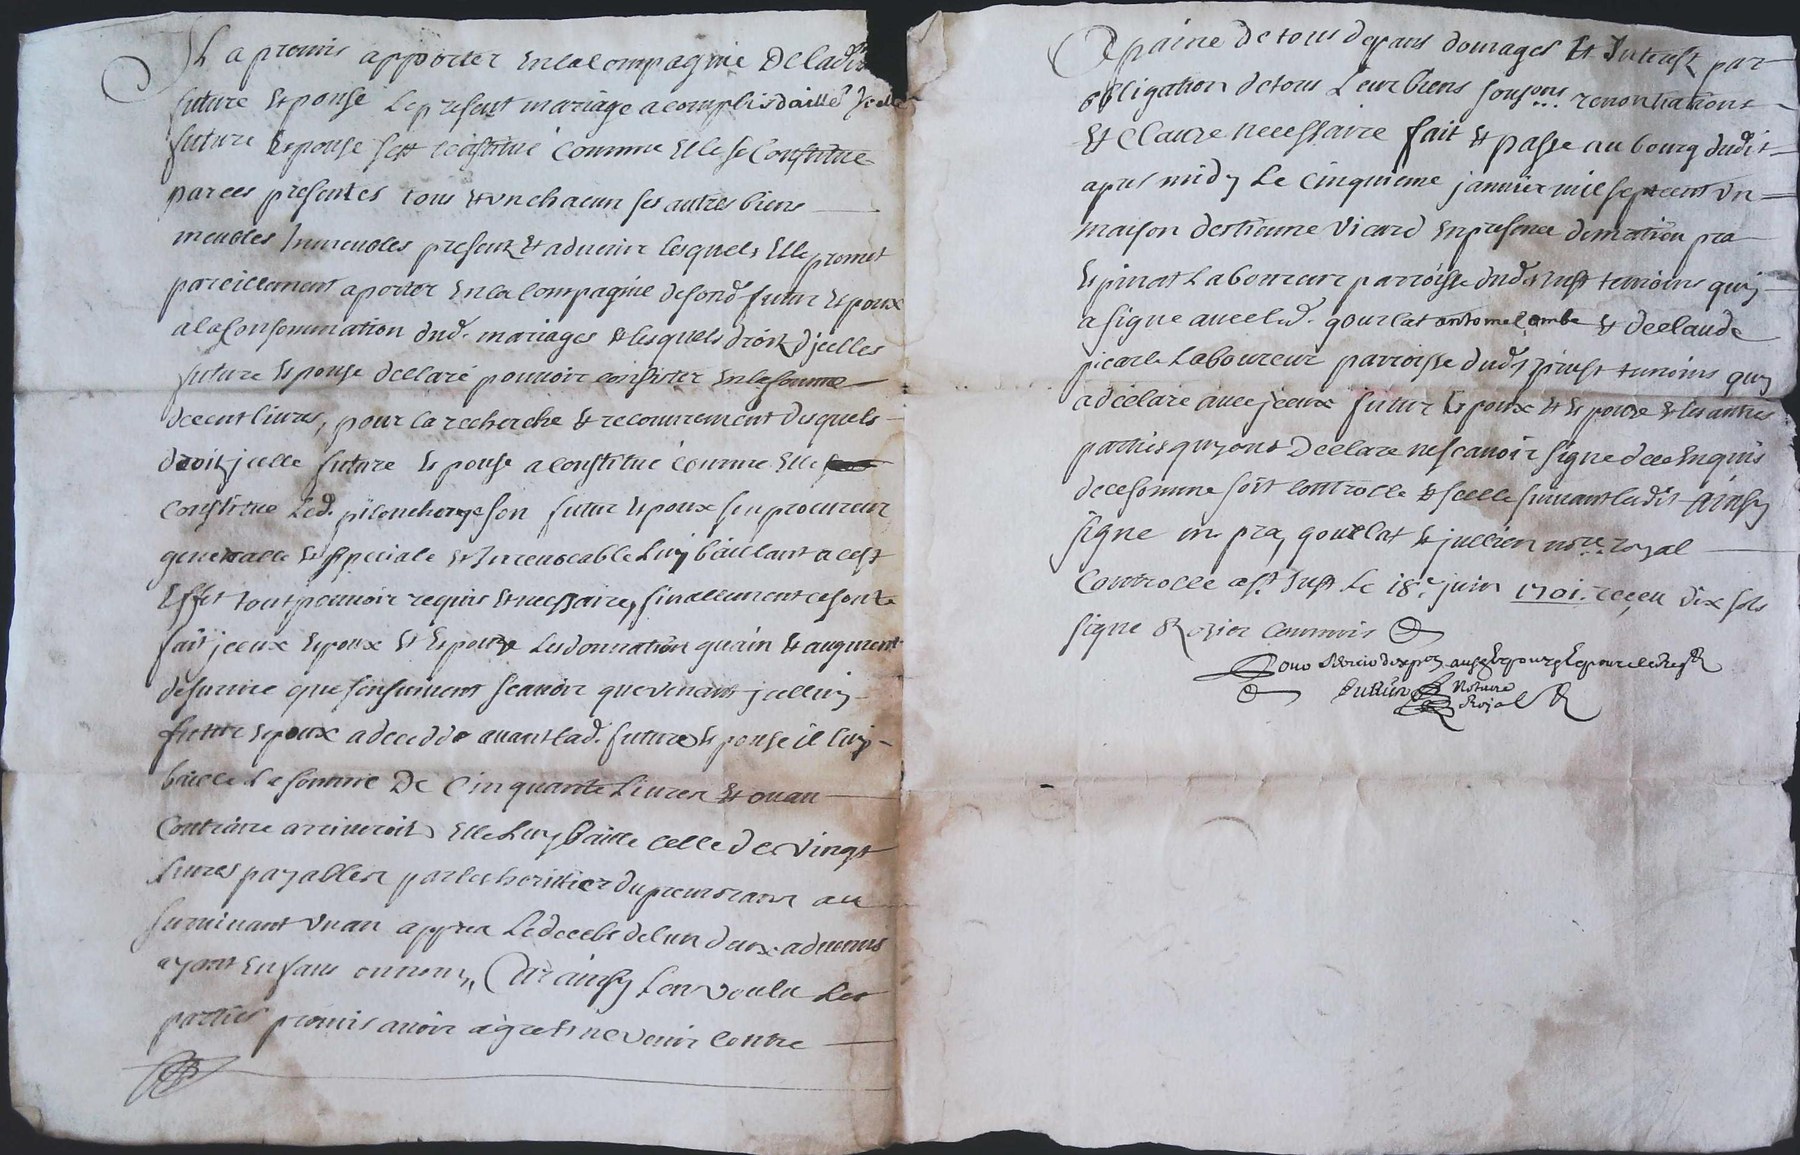 Il a promis apporter en la compagnie de lad.
future Espouse le present mariage acomplis dallie Jcelle
future Espouse sest constitué comme Elle se Constitue
par ces presentes tous et un chacun ses autres biens
meubles Immeubles presentz et advenir lesquels Elle promet
pareillement aporter en la Compagnie de sond. futur Espoux
a la Consommation dud. mariages & lesquels droitz d'jcelles
future Espouse declaré pouvoir consister en la somme
de cent livres, pour la recherche & recouvrement desquels
droitz jcelle future Espouse a constitué comme Elle
Constitue led. pilonchergé son futur Espoux son procureur
generalle & speciale et Irrevocable luy baillant a cest
Effet tout pouvoir requis et necessaire, finallement ce sont
fait jceux Espoux et Espouze les donnation gain & augment
de survie que sensuivent scavoir que venant jcelluy
futur Espoux a decedde avant lad. future Espouse il luy
baille la somme De Cinquante Livres Et ou au
Contraire ariveroit Elle luy baille celle de vingt
livres payables par les heritier du premourant au
survivant un an appres le deceds de lun deux advenus
ayant Enfans ou non, Car ainsy lon voulu Les
parties promis avoir agre & ne venir contre
A paine de tous depans domages Et Interestz par
obligation de tous Leur biens soumons renontiations
& Clauze necessaire fait & passe au bourg dudit
apres midy Le Cinquieme janvier mil sept cent un
maison destienne Vicard En presence de mation pra
Espinat Laboureur parroisse dud. st Just temoins quy
a signe avec led. gourlat antome lombe & de claude
picarle Laboureur parroisse dud. st priest temoins quy
a declaré avec jceux futur Espoux & Espouze & les autres
parties quy ont Declare ne scavoir signe de ce Enquis
de ce somme soit controlle & scelle suivant ledit Ainsy
signe m pra, gourlat & jullien no.re royal
Controlle a st Just Le 18.e juin 1701. receu dix sols
signe Rozier commis
Notaire
Royal